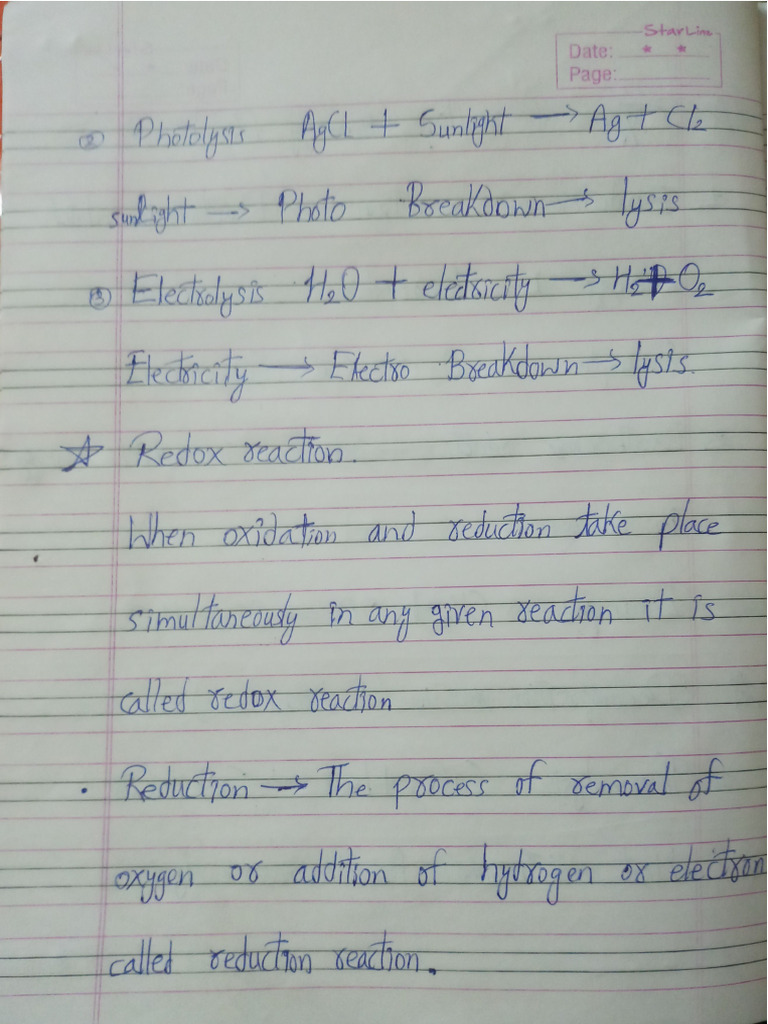 StarLine
Date: * *
Page:
② Photolysis AgCl + Sunlight → Ag + Cl₂
sunlight → Photo Breakdown → lysis
③ Electrolysis H₂O + electricity → H₂ + O₂
Electricity → Electro Breakdown → lysis.
☆ Redox reaction.
When oxidation and reduction take place
simultaneously in any given reaction it is
called redox reaction
• Reduction → The process of removal of
oxygen or addition of hydrogen or electron
called reduction reaction.